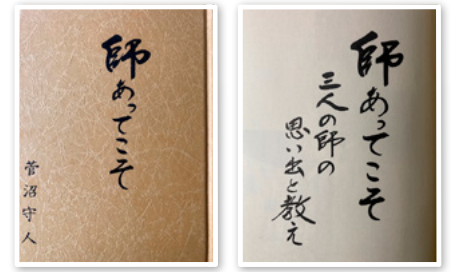 師あってこそ
菅沼守人
師あってこそ
三人の師の
思い出と教え